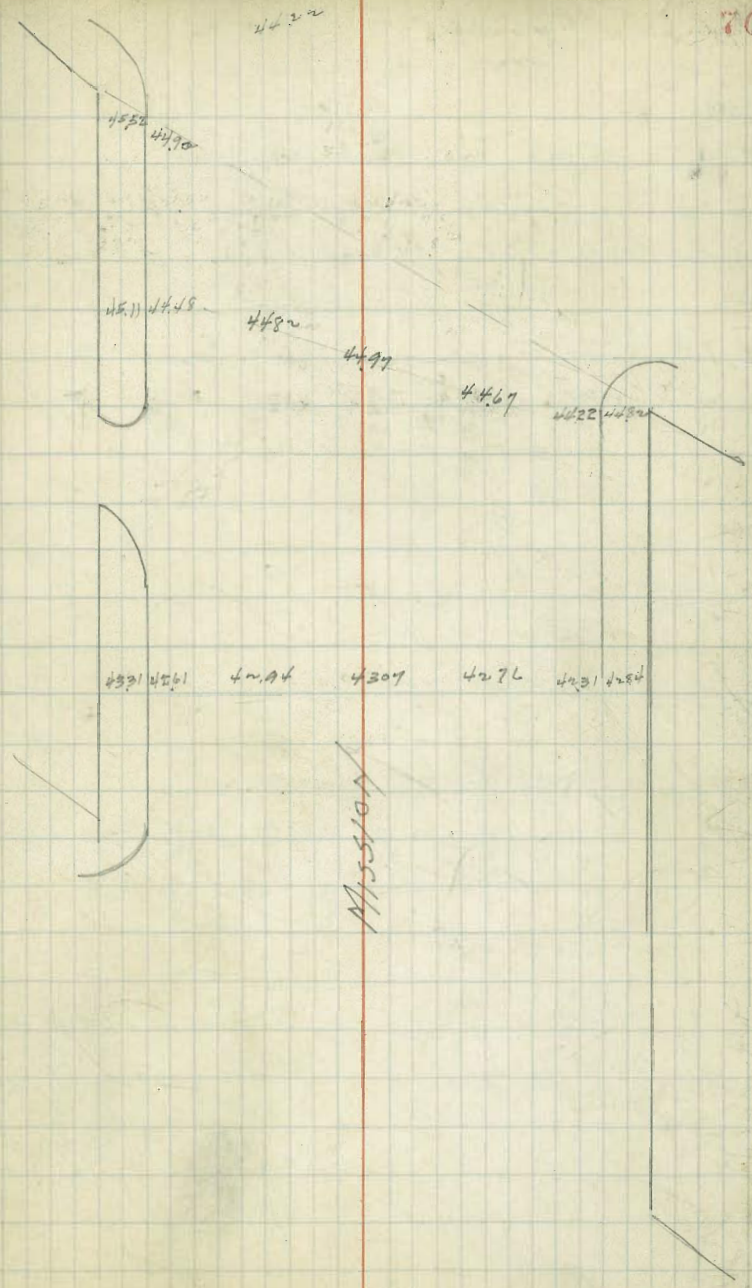 44.22
45.52
44.90
45.11 44.48
44.82
44.97
44.67
44.22 44.82
43.31 42.61 42.94 43.07 42.76 42.31 42.84
MISSION